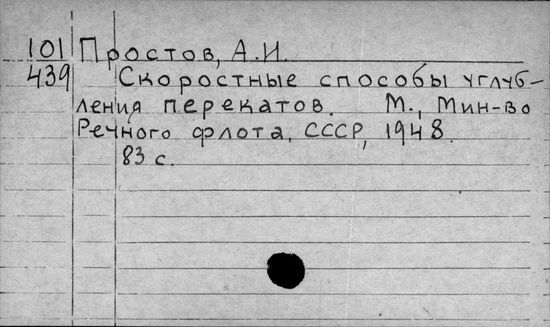 101 Простов, А.И.
439 Скоростные способы углуб-
ления перекатов. М., Мин-во
Речного флота, СССР, 1948.
83 с.